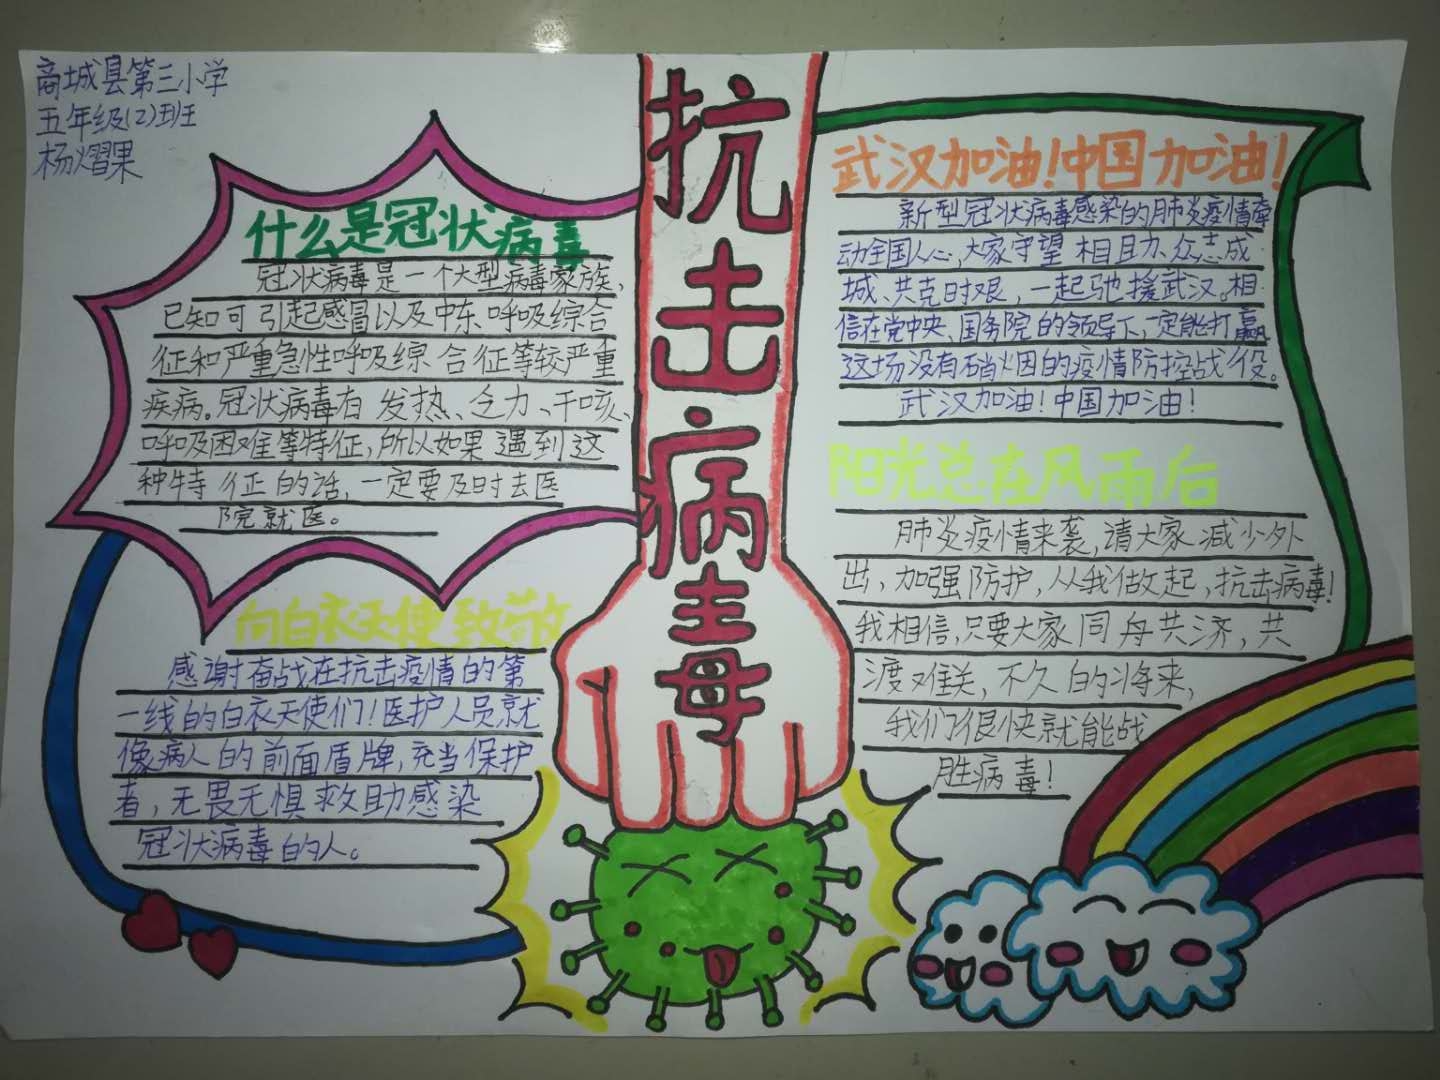 商城县第三小学
五年级(2)班
杨熠果
抗击病毒
什么是冠状病毒
冠状病毒是一个大型病毒家族,
已知可引起感冒以及中东呼吸综合
征和严重急性呼吸综合征等较严重
疾病。冠状病毒有发热、乏力、干咳、
呼吸困难等特征,所以如果遇到这
种特征的话,一定要及时去医
院就医。
向白衣天使致敬
感谢奋战在抗击疫情的第
一线的白衣天使们!医护人员就
像病人的前面盾牌,充当保护
者,无畏无惧救助感染
冠状病毒的人。
武汉加油!中国加油!
新型冠状病毒感染的肺炎疫情牵
动全国人心,大家守望相助、众志成
城、共克时艰,一起驰援武汉。相
信在党中央、国务院的领导下,一定能打赢
这场没有硝烟的疫情防控战役。
武汉加油!中国加油!
阳光总在风雨后
肺炎疫情来袭,请大家减少外
出,加强防护,从我做起,抗击病毒!
我相信,只要大家同舟共济,共
渡难关,不久的将来,
我们很快就能战
胜病毒!